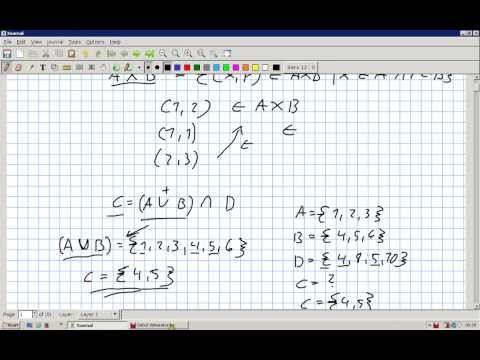 Xournal
File Edit View Journal Tools Options Help
Sans 12
A×B = {(X,Y) ∈ A×B | X ∈ A ∧ Y ∈ B}
(1,2) ∈ A×B
(1,1) ∈
(2,3) ∈
C=(A∪B) ∩ D
+
(A∪B)={1,2,3,4,5,6}
C={4,5}
A={1,2,3}
B={4,5,6}
D={4,9,5,10}
C=?
C={4,5}
Page 1 of 20 Layer: Layer 1
Start Xournal